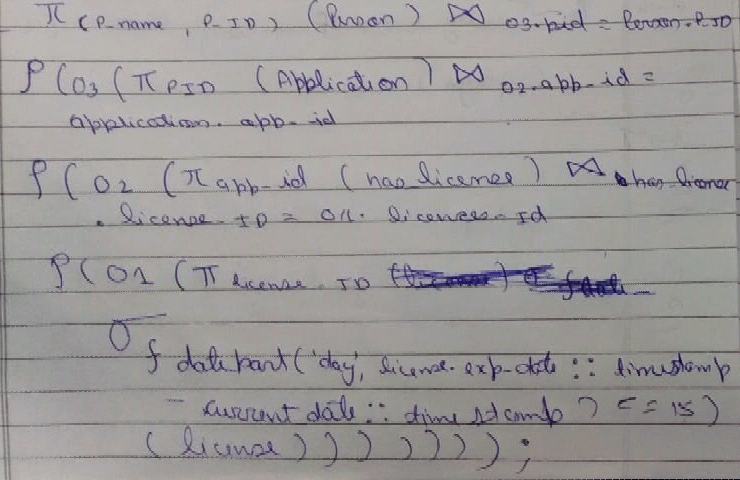 π (P_name, P_ID) (Person) ⋈ O3.pid = Person.P_ID
ρ (O3 (π P_ID (Application) ⋈ O2.app_id =
application.app_id
ρ (O2 (π app_id (has_license) ⋈ has_license
. license_ID = O1. license_Id
ρ (O1 (π license_ID
σ f date part ('day', license.exp_date :: timestamp
- current date :: timestamp ) <= 15)
(license) ) ) ) ) ) ) ;